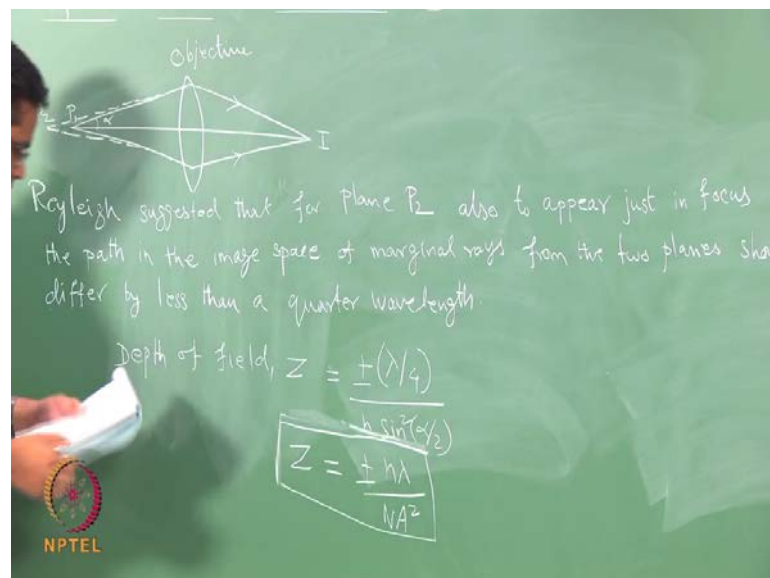 Objective
P1 α
I
Rayleigh suggested that for plane P2 also to appear just in focus
the path in the image space of marginal rays from the two planes
differ by less than a quarter wavelength.
Depth of field, Z = ± (λ/4)
n sin²(α/2)
Z = ± nλ
NA²
NPTEL